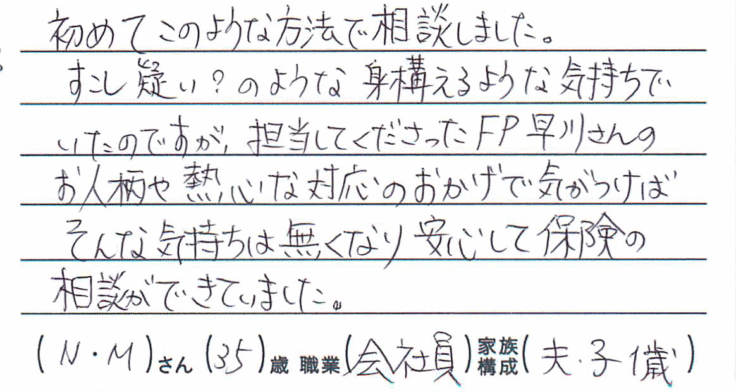 初めてこのような方法で相談しました。
すこし疑い？のような身構えるような気持ちで
いたのですが、担当してくださったFP早川さんの
お人柄や熱心な対応のおかげで気がつけば
そんな気持ちは無くなり安心して保険の
相談ができていました。
(N・M)さん(35)歳 職業(会社員)家族構成(夫・子1歳)